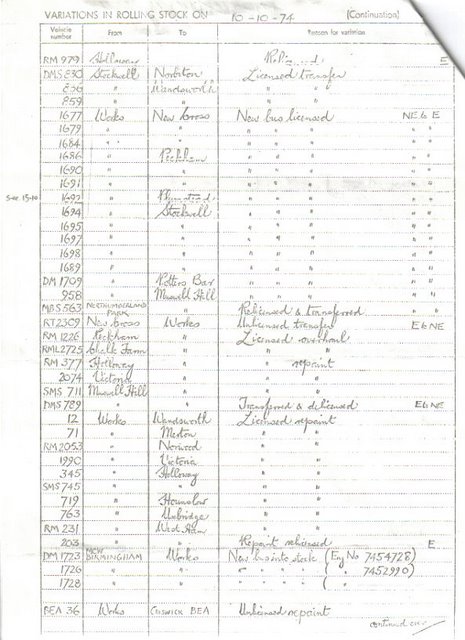 VARIATIONS IN ROLLING STOCK ON 10-10-74 (Continuation)
Vehicle number From To Reason for variation
RM 979 Holloway Relicensed E
DMS 830 Stockwell Norbiton Licensed transfer
856 " Wandsworth " "
859 " " " "
1677 Works New Cross New bus licensed NE to E
1679 " " " " " " "
1684 " " " " " " "
1686 " Peckham " " " " "
1690 " " " " " " "
1691 " " " " " " "
5-10 1692 " Plumstead " " " " "
1694 " Stockwell " " " " "
1695 " " " " " " "
1697 " " " " " " "
1698 " " " " " " "
1689 " " " " " " "
DM 1709 " Potters Bar " " " " "
958 " Muswell Hill " " " " "
MBS 563 NORTHUMBERLAND PARK " Relicensed & transferred " "
RT 2309 New Cross Works Unlicensed transfer E to NE
RM 1226 Peckham " Licensed overhaul
RML 2725 Chalk Farm " " "
RM 377 Holloway " " repaint
2074 Victoria " " "
SMS 711 Muswell Hill " " "
DMS 789 " " Transferred & delicensed E to NE
12 Works Wandsworth Licensed repaint
71 " Merton " "
RM 2053 " Norwood " "
1990 " Victoria " "
345 " Holloway " "
SMS 745 " " " "
719 " Hounslow " "
763 " Uxbridge " "
RM 231 " West Ham " "
203 " " Repaint relicensed E
DM 1723 MCW BIRMINGHAM Works New bus into stock (Eng No 7454728)
1726 " " " " " " ( " " 7452990)
1728 " " " " " " ( )
BEA 36 Works CHISWICK BEA Unlicensed repaint
continued over